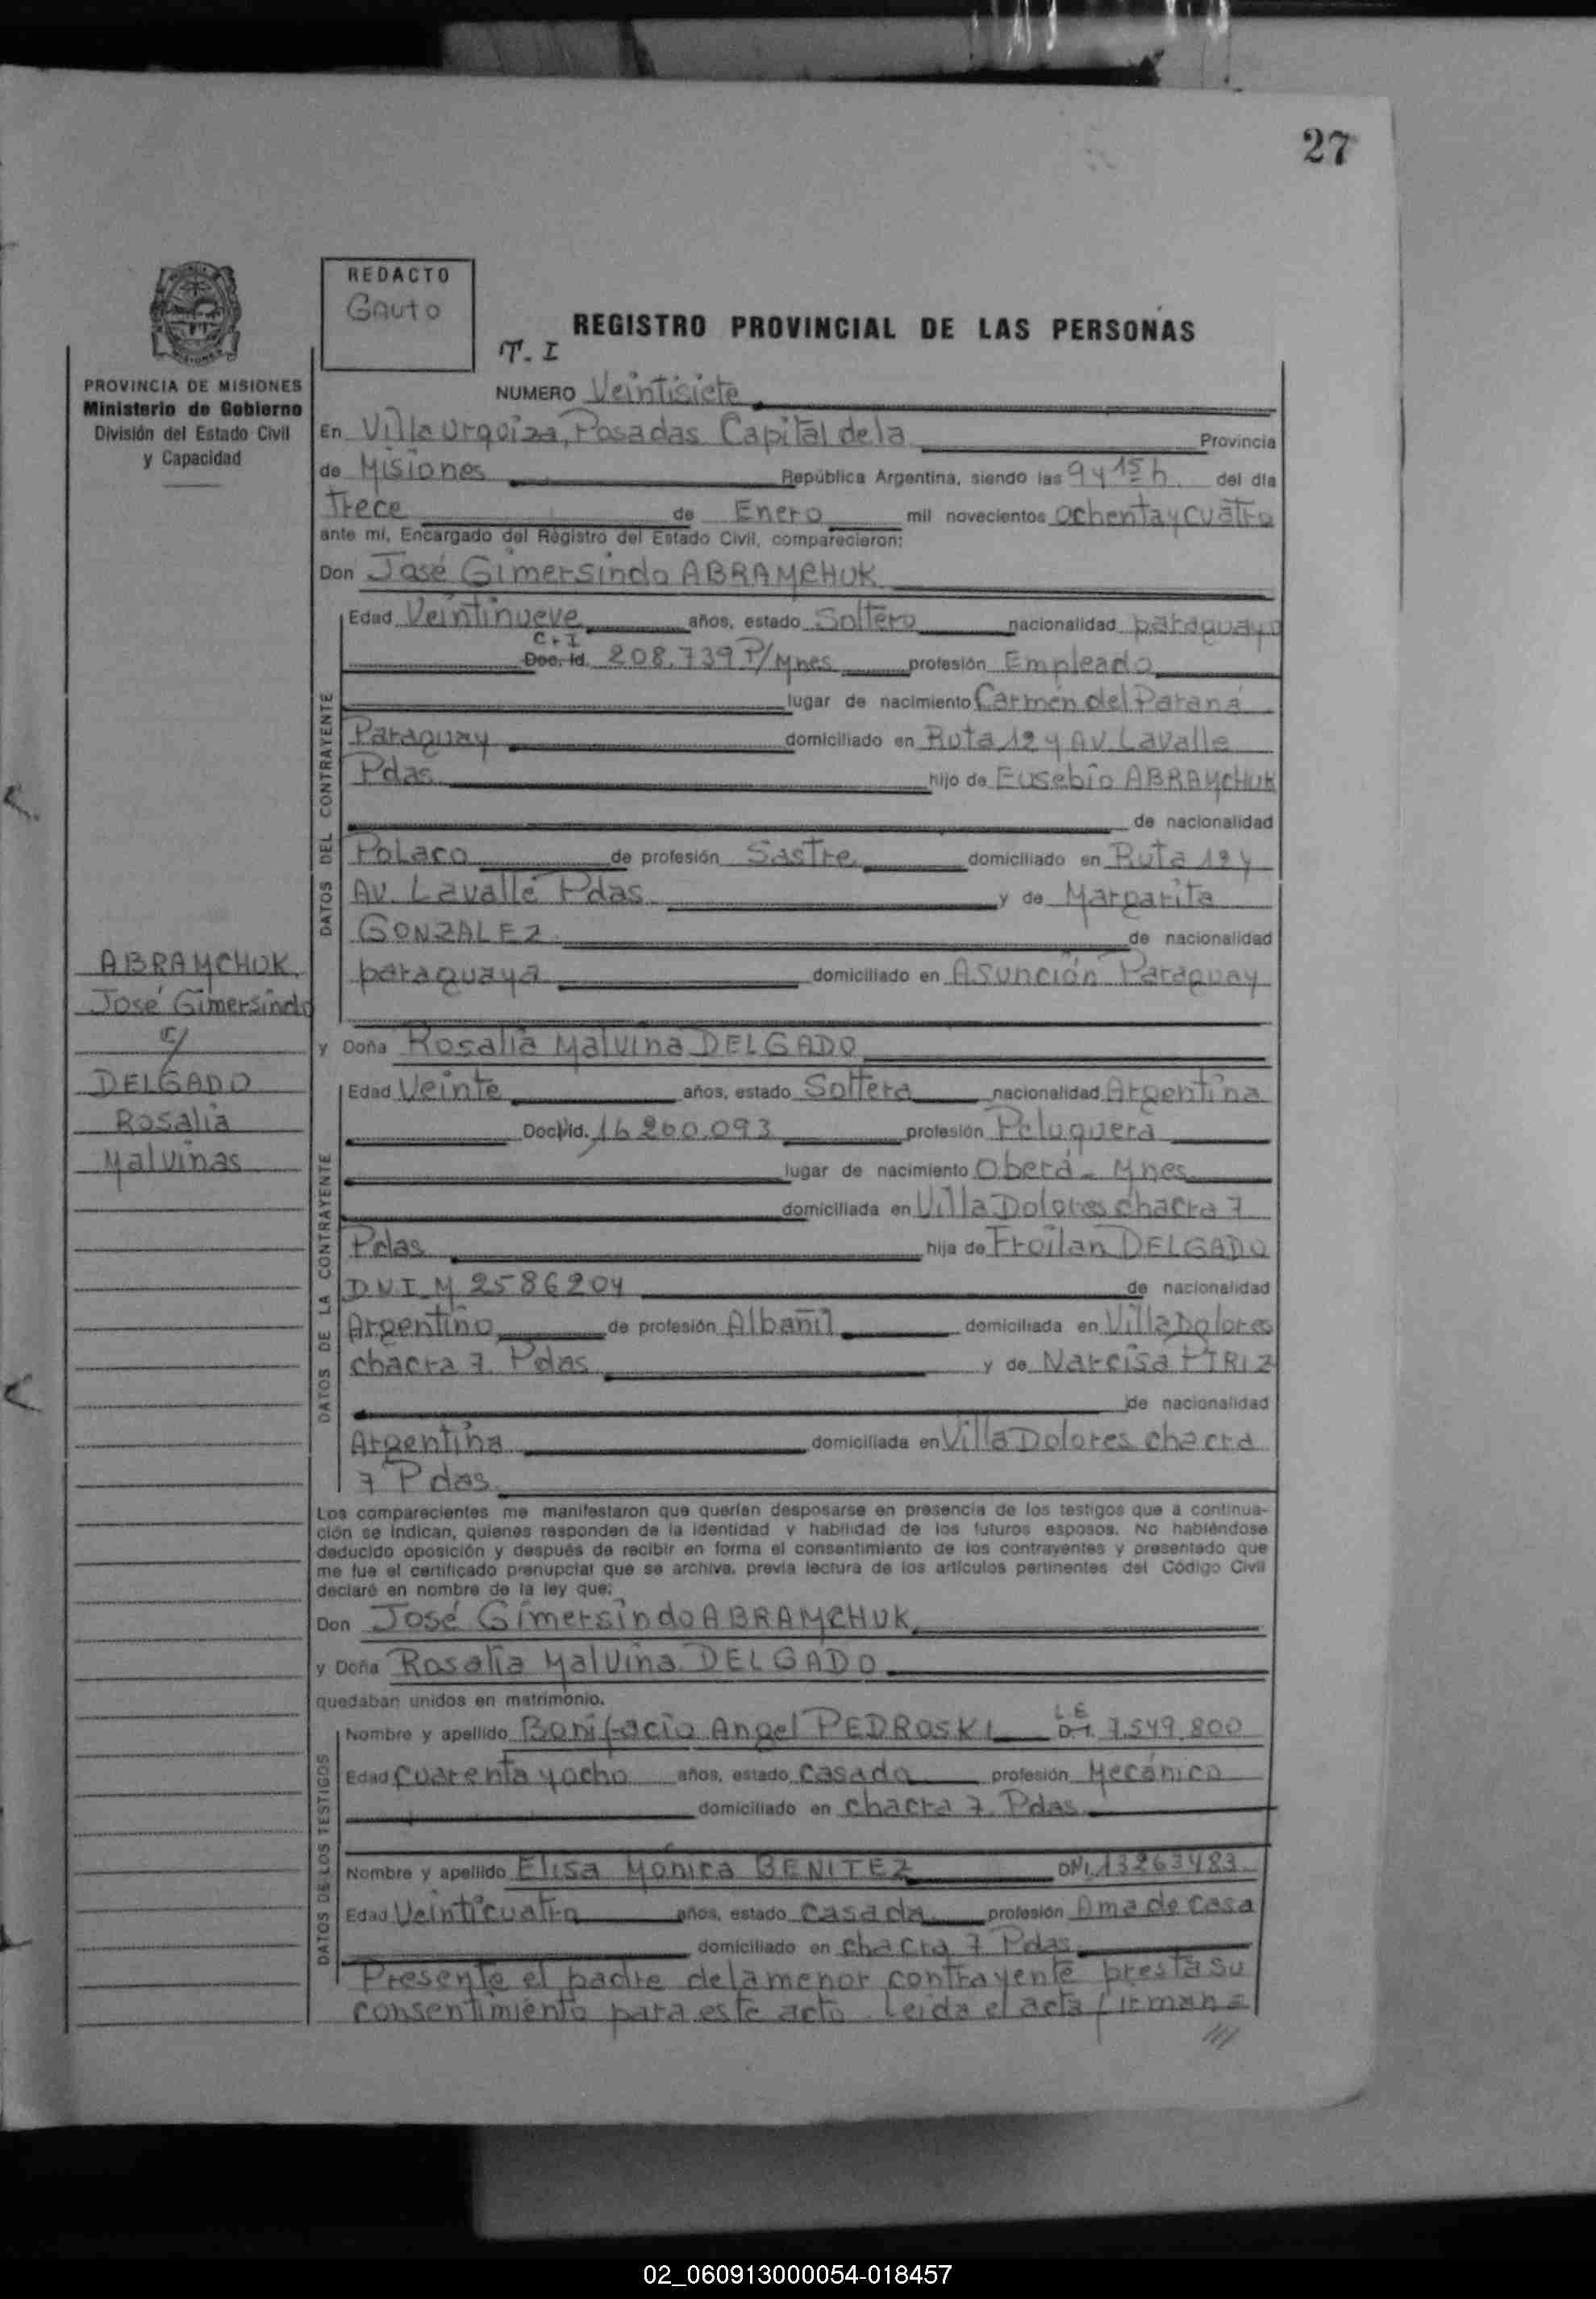 27
REDACTO
Gauto
REGISTRO PROVINCIAL DE LAS PERSONAS
T. I
PROVINCIA DE MISIONES
Ministerio de Gobierno
División del Estado Civil
y Capacidad
NUMERO Veintisiete
En Villa Urquiza, Posadas Capital de la Provincia
de Misiones República Argentina, siendo las 9 y 15 h. del día
trece de Enero mil novecientos ochenta y cuatro
ante mí, Encargado del Registro del Estado Civil, comparecieron:
Don José Gimersindo ABRAMCHUK
DATOS DEL CONTRAYENTE
Edad Veintinueve años, estado Soltero nacionalidad paraguayo
C. I
Doc. Id. 208.739 P/Mnes profesión Empleado
lugar de nacimiento Carmen del Paraná
Paraguay domiciliado en Ruta 12 y AV. Lavalle
Pdas hijo de Eusebio ABRAMCHUK
de nacionalidad
Polaco de profesión Sastre domiciliado en Ruta 12 y
AV. Lavalle Pdas. y de Margarita
GONZALEZ de nacionalidad
paraguaya domiciliado en Asunción Paraguay
ABRAMCHUK
José Gimersindo
c/
DELGADO
Rosalia
Malvinas
y Doña Rosalia Malvina DELGADO
DATOS DE LA CONTRAYENTE
Edad Veinte años, estado Soltera nacionalidad Argentina
Doc. Id. 16.200.093 profesión Peluquera
lugar de nacimiento Oberá - Mnes
domiciliada en Villa Dolores chacra 7
Pdas hija de Froilan DELGADO
DNI M 2586204 de nacionalidad
Argentino de profesión Albañil domiciliada en Villa Dolores
chacra 7. Pdas y de Narcisa
de nacionalidad
Argentina domiciliada en Villa Dolores chacra
7 Pdas.
Los comparecientes me manifestaron que querían desposarse en presencia de los testigos que a continua-
ción se indican, quienes responden de la identidad y habilidad de los futuros esposos. No habiéndose
deducido oposición y después de recibir en forma el consentimiento de los contrayentes y presentado que
me fue el certificado prenupcial que se archiva, previa lectura de los artículos pertinentes del Código Civil
declaré en nombre de la ley que:
Don José Gimersindo ABRAMCHUK
y Doña Rosalia Malvina DELGADO
quedaban unidos en matrimonio.
DATOS DE LOS TESTIGOS
L.E
Nombre y apellido Bonifacio Angel PEDROSKI D.I. 7.549.800
Edad Cuarenta y ocho años, estado casado profesión Mecánico
domiciliado en chacra 7. Pdas
Nombre y apellido Elisa Mónica BENITEZ DNI. 13263483
Edad Veinticuatro años, estado casada profesión Ama de casa
domiciliado en chacra 7 Pdas.
Presente el padre de la menor contrayente presta su
consentimiento para este acto. Leida el acta firman a
///
02_060913000054-018457